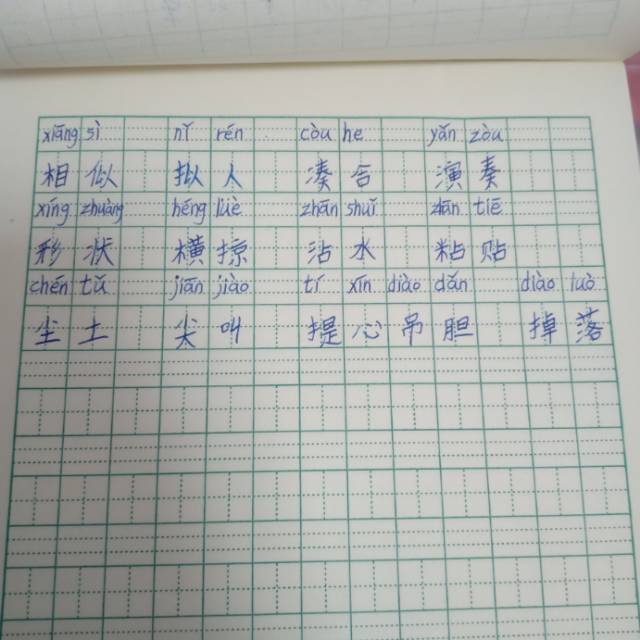 xiāng sì nǐ rén còu he yǎn zòu
相似 拟人 凑合 演奏
xíng zhuàng héng lüè zhān shuǐ zhān tiē
形状 横掠 沾水 粘贴
chén tǔ jiān jiào tí xīn diào dǎn diào luò
尘土 尖叫 提心吊胆 掉落